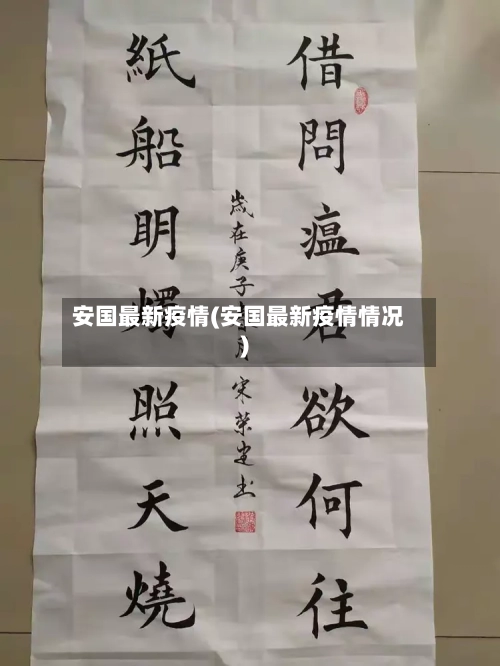 借問瘟君欲何往
紙船明燭照天燒
歲在庚子
月
榮
書
安国最新疫情(安国最新疫情情况
)